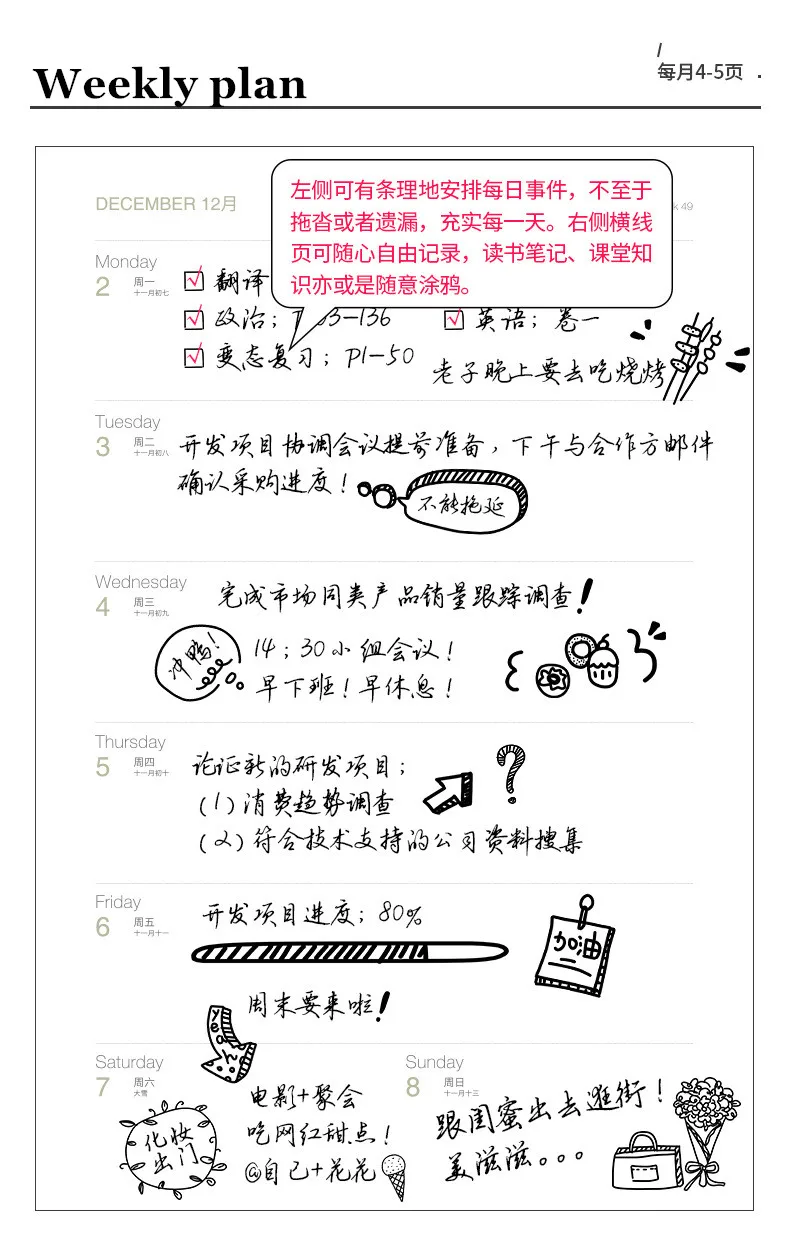 Weekly plan
/
每月4-5页 .
DECEMBER 12月
49
左侧可有条理地安排每日事件，不至于
拖沓或者遗漏，充实每一天。右侧横线
页可随心自由记录，读书笔记、课堂知
识亦或是随意涂鸦。
Monday
2 周一
十一月初七
翻译
政治；
3-136
英语；卷一
变态复习；P1-50
老子晚上要去吃烧烤
Tuesday
3 周二
十一月初八
开发项目协调会议提前准备，下午与合作方邮件
确认采购进度！
不能拖延
Wednesday
4 周三
十一月初九
完成市场同类产品销量跟踪调查！
冲鸭！
14；30小组会议！
早下班！早休息！
Thursday
5 周四
十一月初十
论证新的研发项目；
?
(1)消费趋势调查
(2)符合技术支持的公司资料搜集
Friday
6 周五
十一月十一
开发项目进度；80%
加油
周末要来啦！
yeah
Saturday
7 周六
大雪
化妆
出门
电影+聚会
吃网红甜点！
@自己+花花
Sunday
8 周日
十一月十三
跟闺蜜出去逛街！
美滋滋。。。